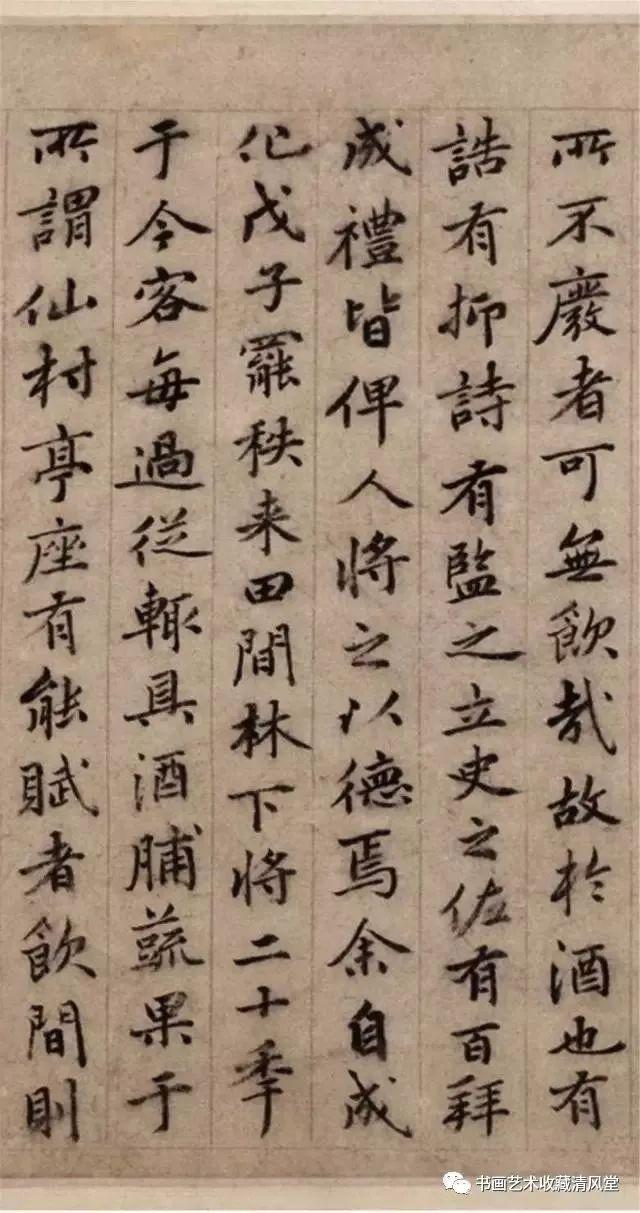 所不廢者可無飲哉故於酒也有
誥有抑詩有監之立史之佐有百拜
成禮皆俾人將之以德焉余自成
化戊子罷秩来田間林下将二十季
于今客每過從輒具酒脯蔬果于
所謂仙村亭座有能賦者飲間則
书画艺术收藏清风堂